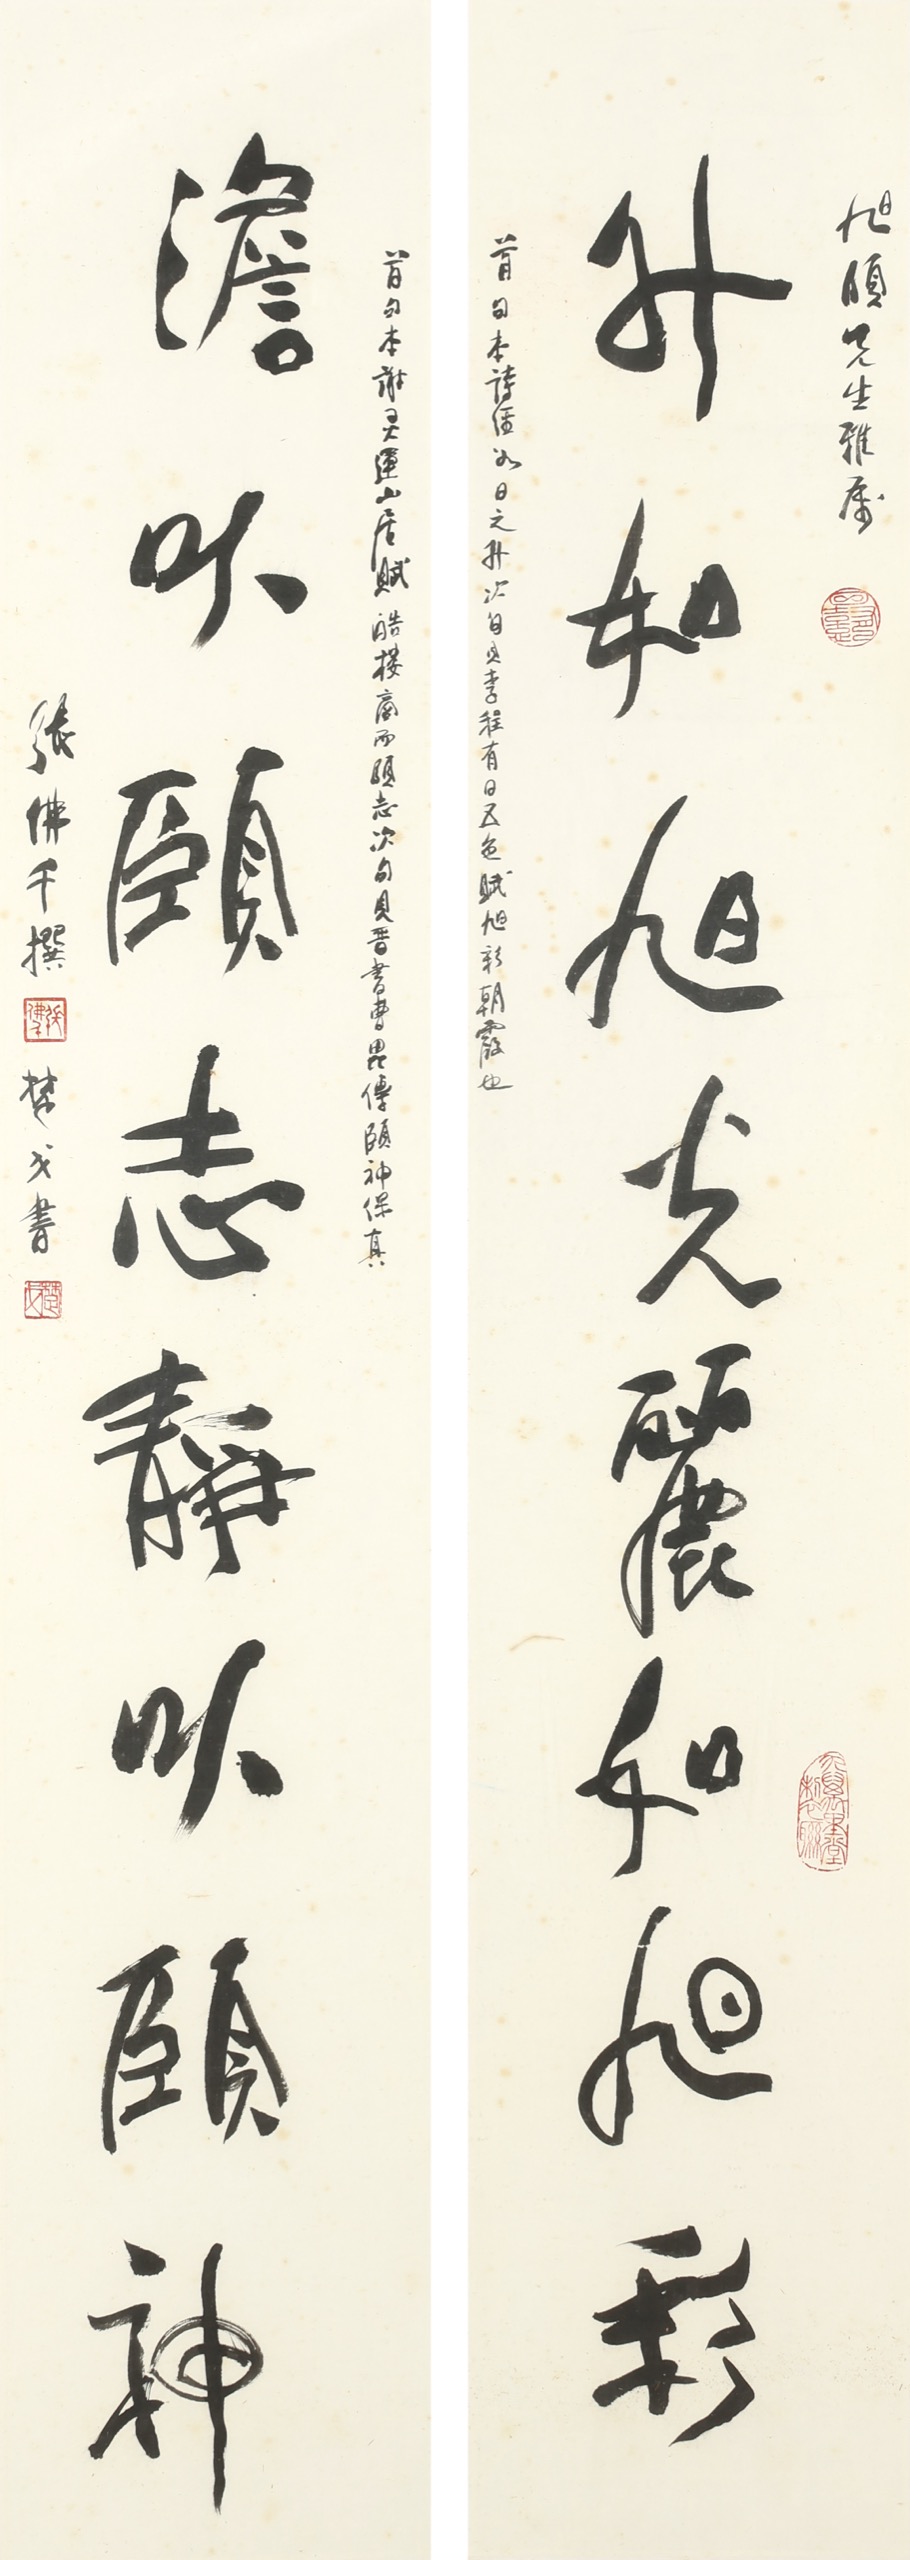 旭頤先生雅屬
升如旭光麗如旭彩
首句本詩經如日之升次句見李程有日五色賦旭彩朝霞也
首句本謝灵運山居賦皓棲商而頤志次句見晉書曹毘傳頤神保真
澹以頤志靜以頤神
張佛千撰 楚戈書